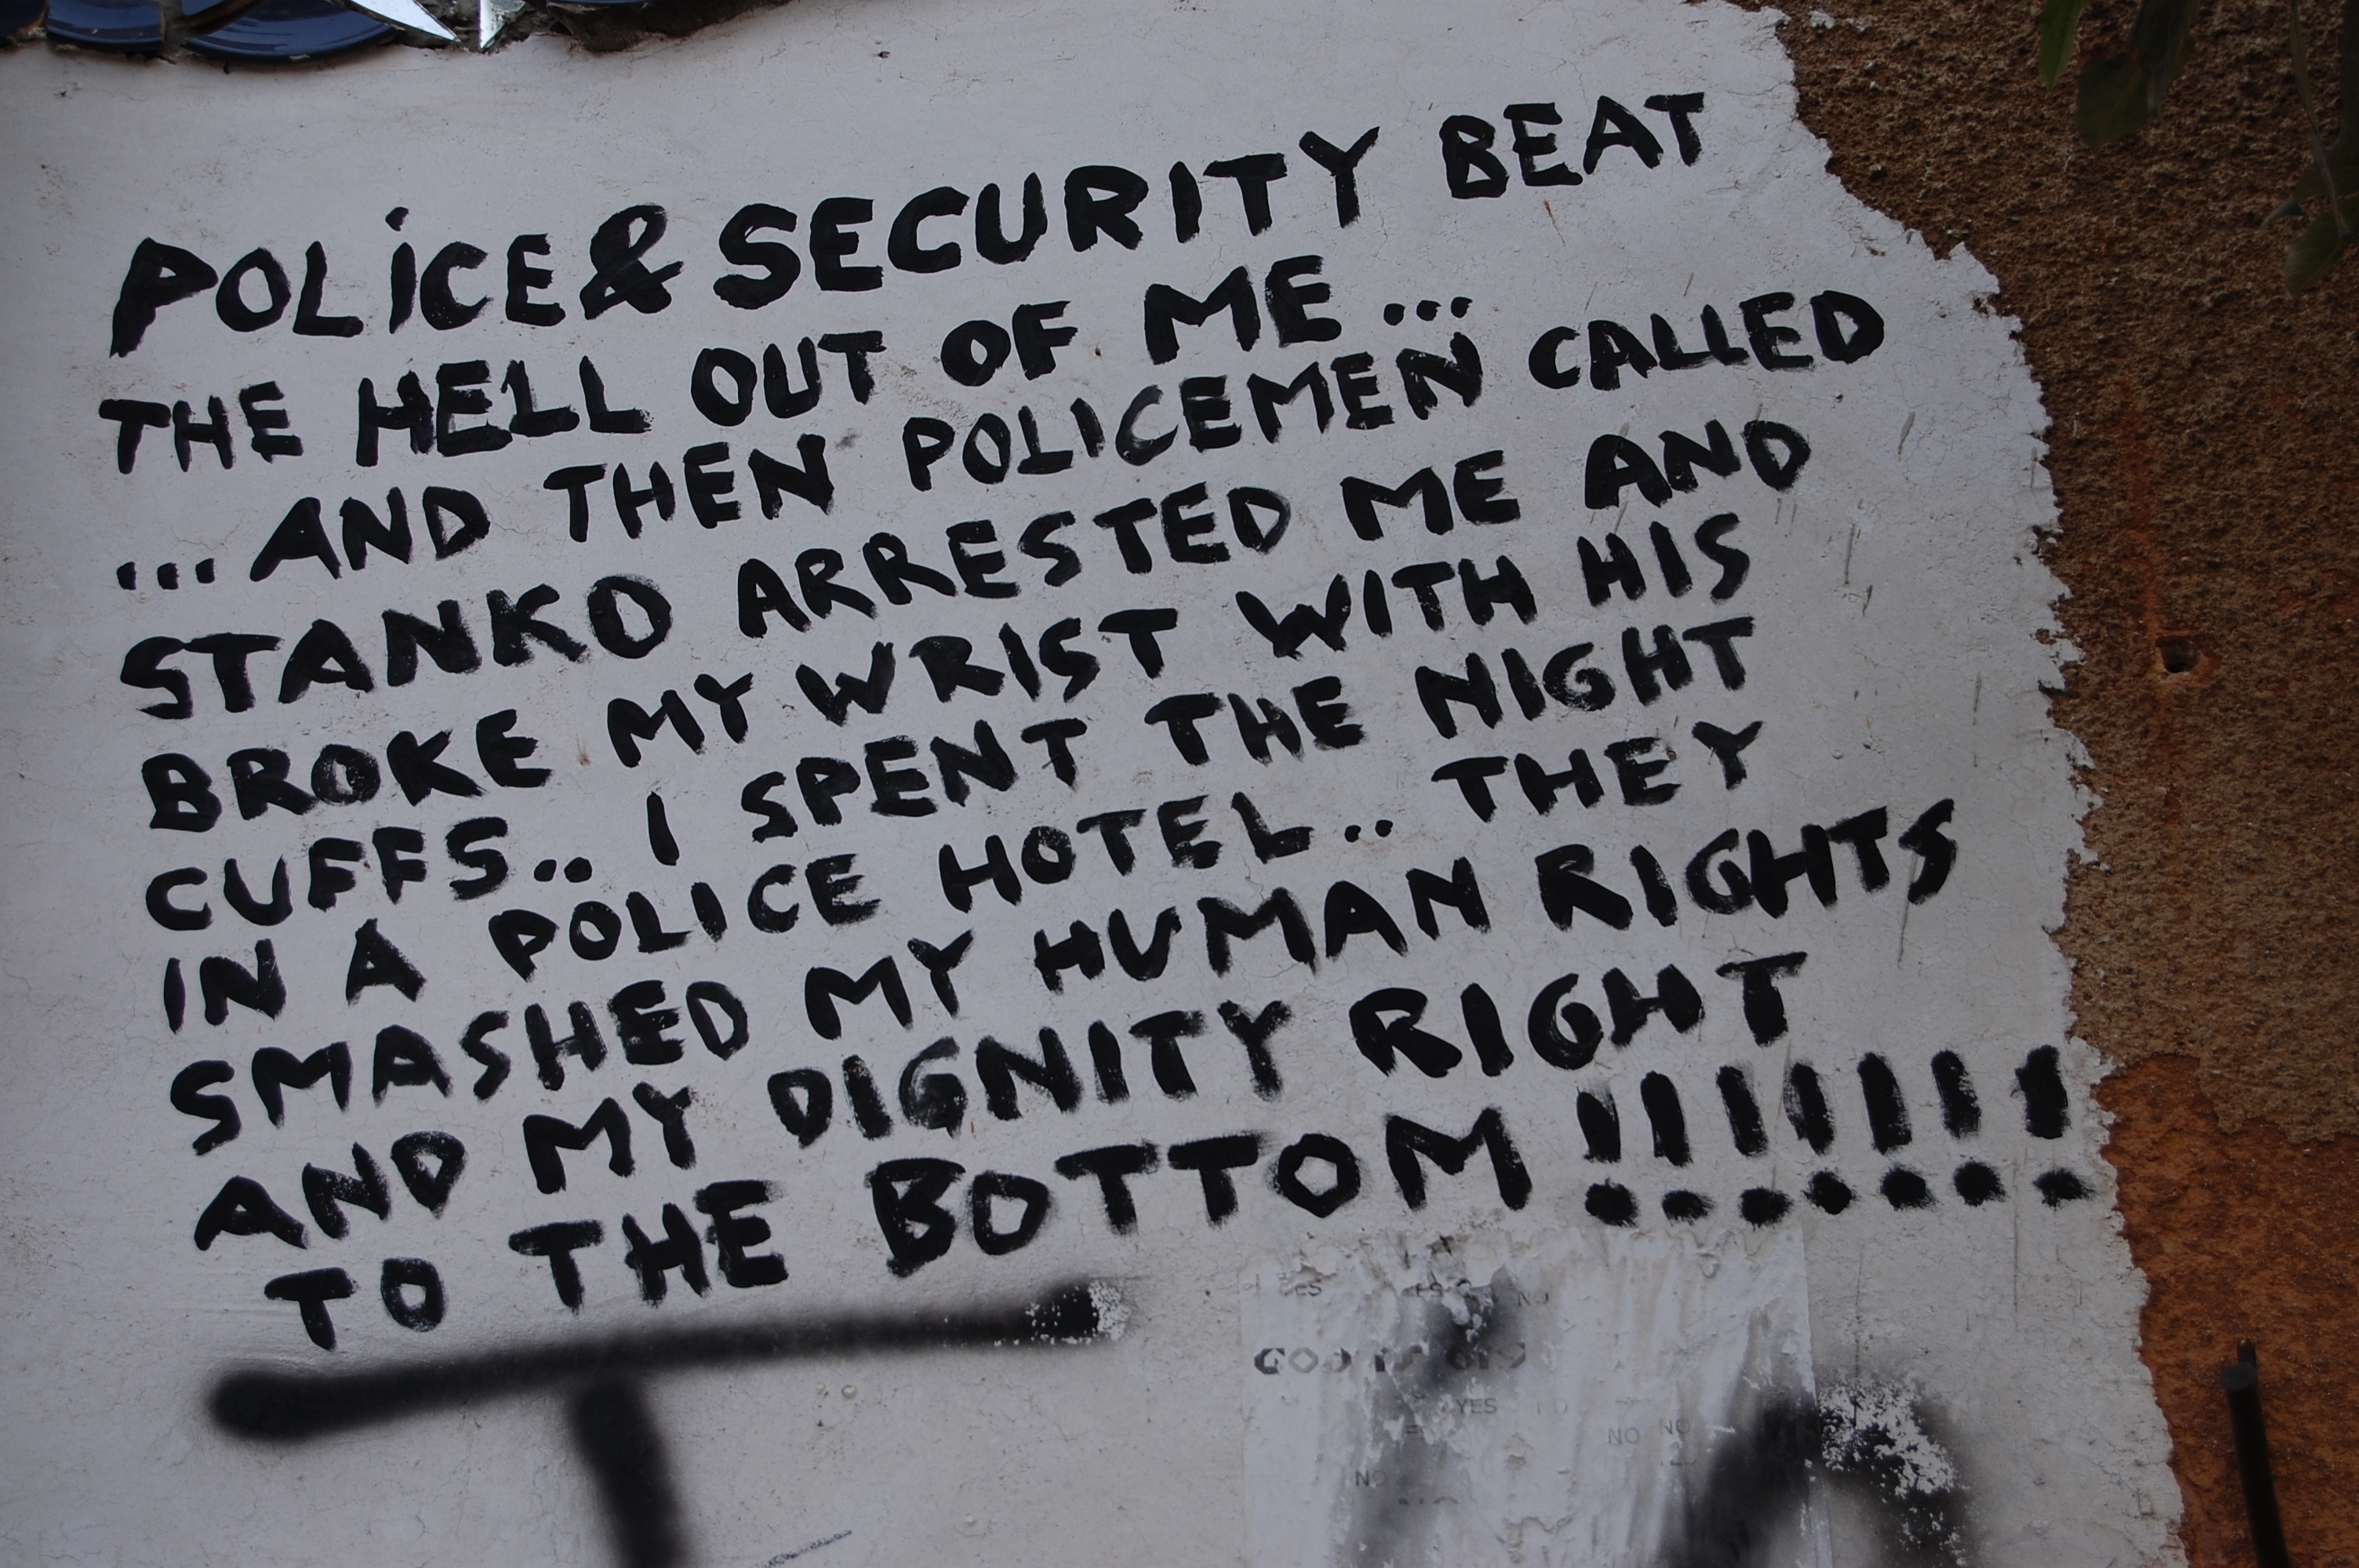 POLICE & SECURITY BEAT
THE HELL OUT OF ME...
...AND THEN POLICEMEN CALLED
STANKO ARRESTED ME AND
BROKE MY WRIST WITH HIS
CUFFS.. I SPENT THE NIGHT
IN A POLICE HOTEL.. THEY
SMASHED MY HUMAN RIGHTS
AND MY DIGNITY RIGHT
TO THE BOTTOM !!!!!!!
NO
YES
NO NO
NO